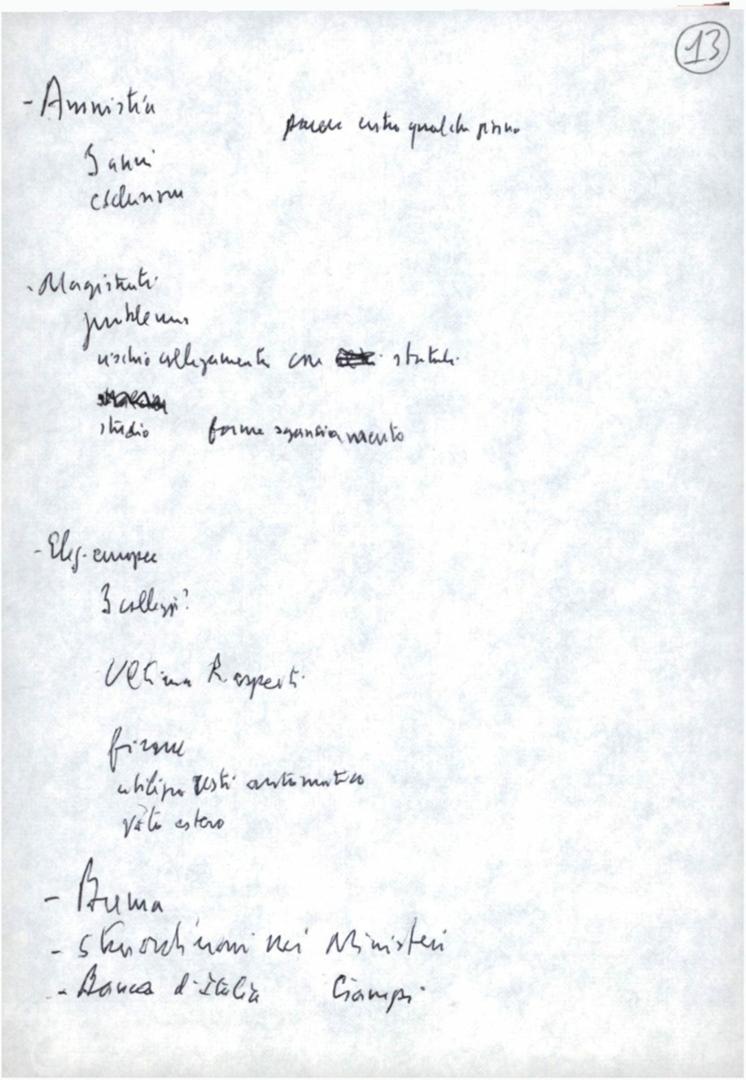 13
- Amnistia
parere entro qualche giorno
3 anni
esclusioni
- Magistrati
problema
rischio collegamento con statali
studio forme sganciamento
- Elez. europee
3 collegi?
Ultima R aspetti
firme
utilizzo resti automatico
voto estero
- straordinari nei Ministeri
- Banca d'Italia Ciampi